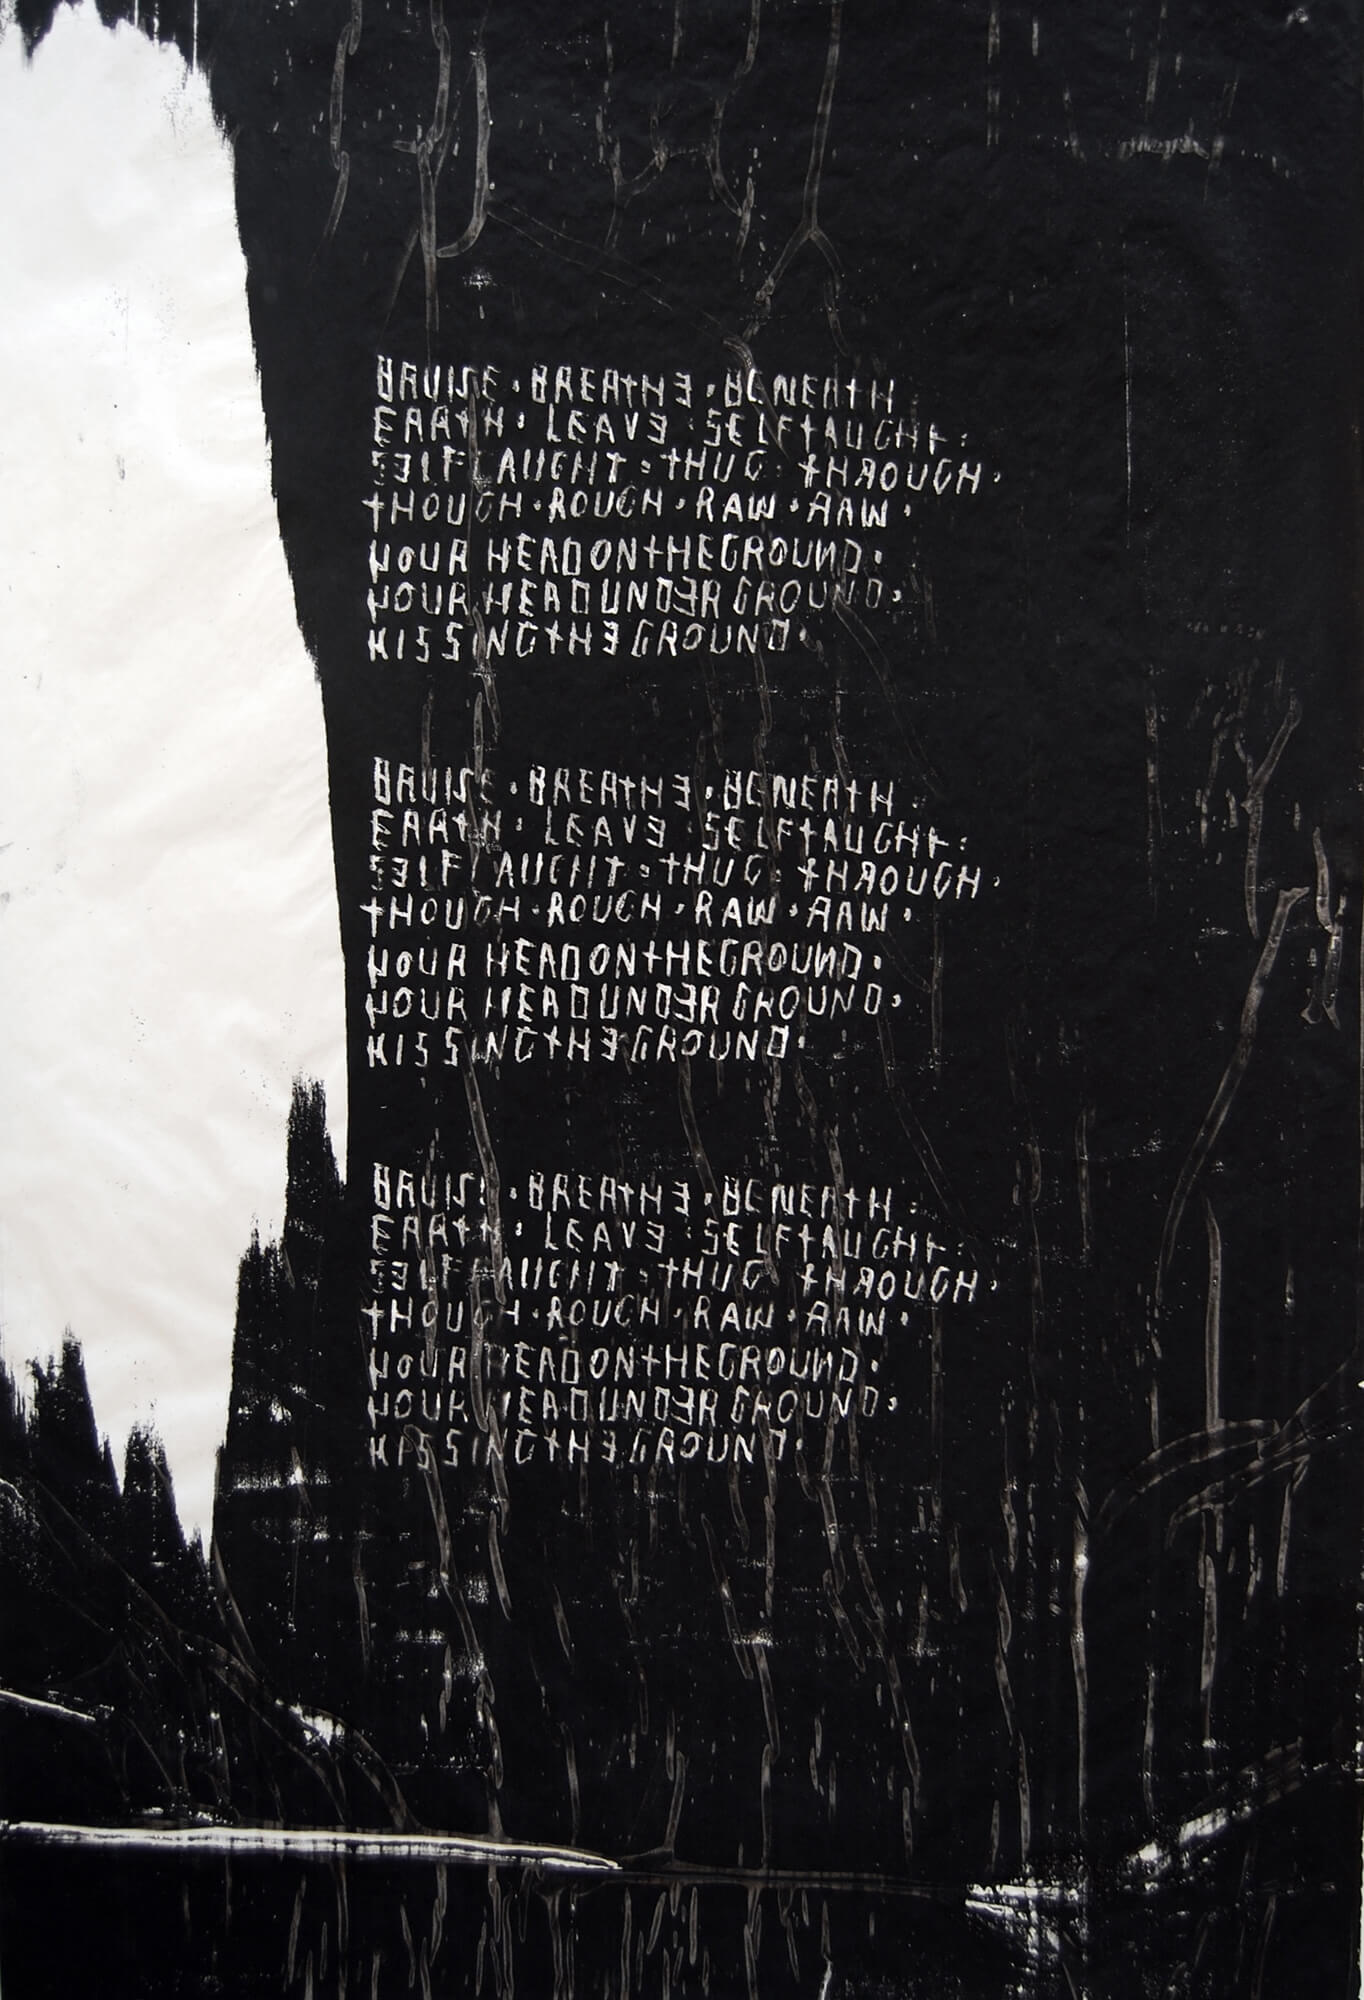 BRUISE · BREATHE · BENEATH :
EARTH : LEAVE : SELFTAUGHT :
SELFTAUGHT : THUG : THROUGH ·
THOUGH · ROUGH · RAW · RAW ·
YOUR HEADONTHEGROUND ·
YOUR HEADUNDERGROUND ·
KISSINGTHEGROUND ·
BRUISE · BREATHE · BENEATH :
EARTH : LEAVE : SELFTAUGHT :
SELFTAUGHT : THUG : THROUGH ·
THOUGH · ROUGH · RAW · RAW ·
YOUR HEADONTHEGROUND ·
YOUR HEADUNDERGROUND ·
KISSINGTHEGROUND ·
BRUISE · BREATHE · BENEATH :
EARTH : LEAVE : SELFTAUGHT :
SELFTAUGHT : THUG THROUGH ·
THOUGH · ROUGH · RAW · RAW ·
YOUR HEADONTHEGROUND ·
YOUR HEADUNDERGROUND ·
KISSINGTHEGROUND ·